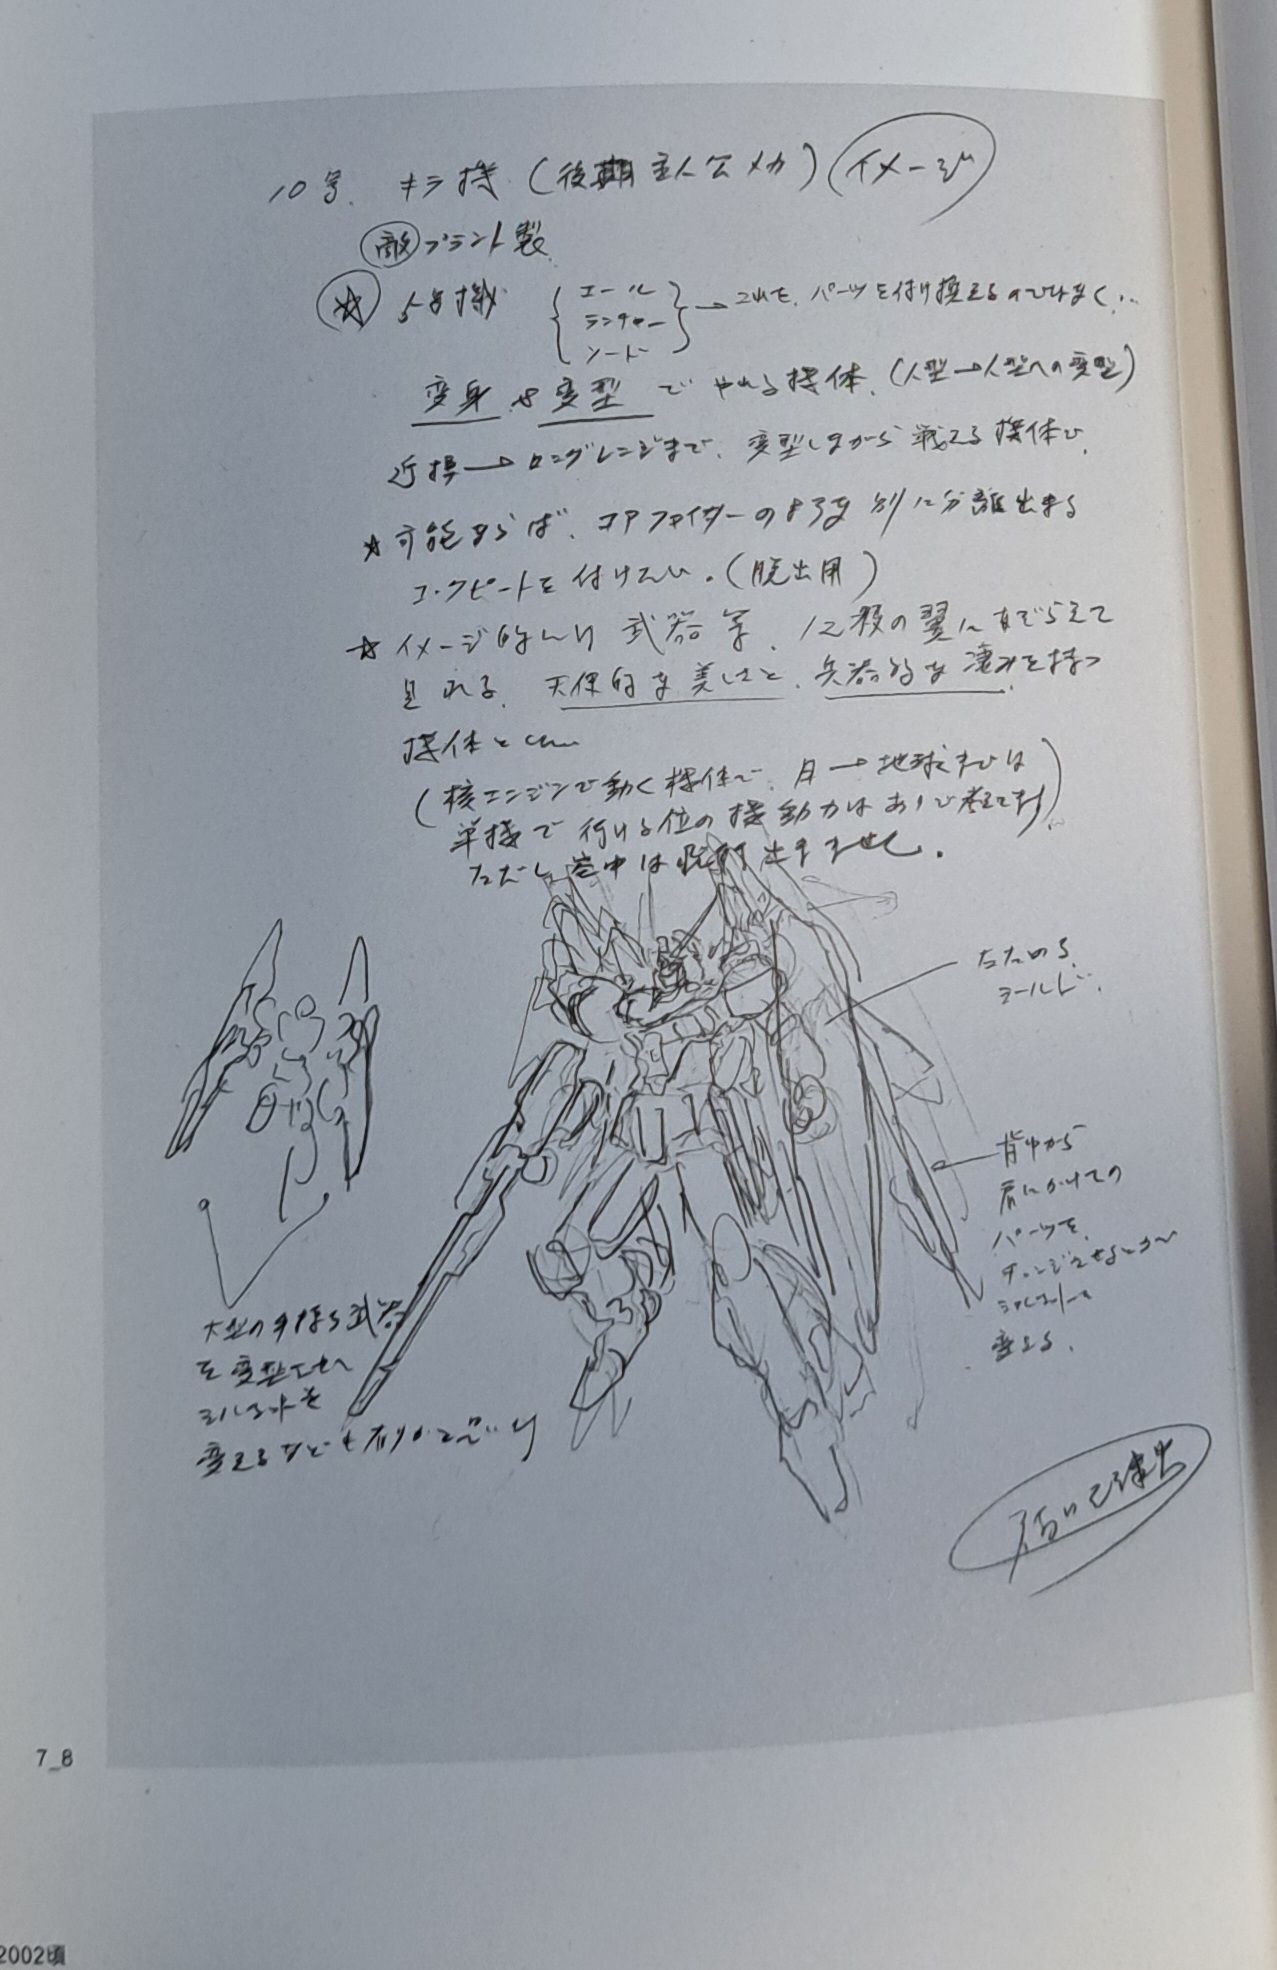 10号. キラ機 (後期主人公メカ) イメージ
敵 プラント製
☆ 5号機 { エール ランチャー ソード } → これを、パーツを付け換えるのではなく、..
変身や変型でやれる機体。(人型→人型への変型)
近接→ロングレンジまで、変型しながら戦える機体に。
☆ 可能ならば、コアファイターのような別に分離出来る
コックピートを付けたい。(脱出用)
☆ イメージ的には武器等、12枚の翼になぞらえて
見れる、天使的な美しさと、兵器的な凄みを持つ
機体としたい
(核エンジンで動く機体で、月→地球までは
単機で行ける位の機動力はありで考えてます)
ただし 劇中は 出来ません。
たためる
シールド。
背中から
肩にかけての
パーツを、
チェンジさせるとかで
シルエットを
変える。
大型の手持ち武器
を変型させ
シルエットを
変えるなども有りかと思い
7_8
2002頃